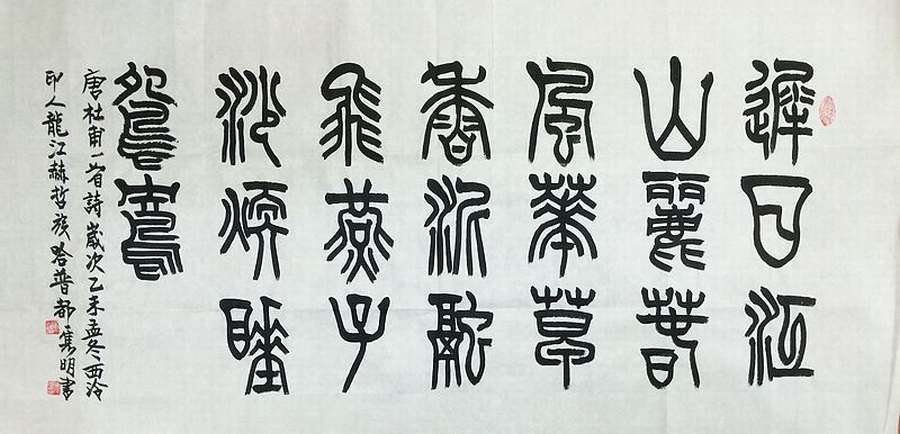 遲日江
山麗春
風華草
香泥融
飛燕子
沙煖睡
鴛鴦
唐杜甫一首詩歲次乙未孟冬西泠
印人龍江赫哲族哈普都隽明書